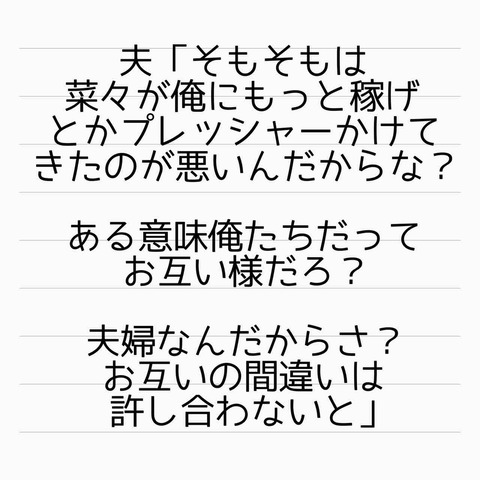 夫「そもそもは
菜々が俺にもっと稼げ
とかプレッシャーかけて
きたのが悪いんだからな？
ある意味俺たちだって
お互い様だろ？
夫婦なんだからさ？
お互いの間違いは
許し合わないと」